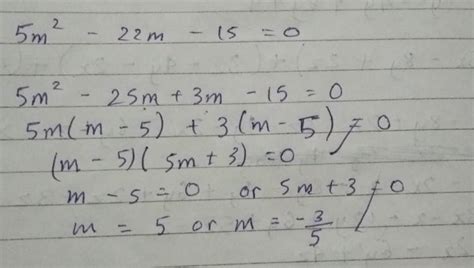 5m² - 22m - 15 = 0
5m² - 25m + 3m - 15 = 0
5m(m - 5) + 3(m - 5) = 0
(m - 5)(5m + 3) = 0
m - 5 = 0 or 5m + 3 = 0
m = 5 or m = -3/5